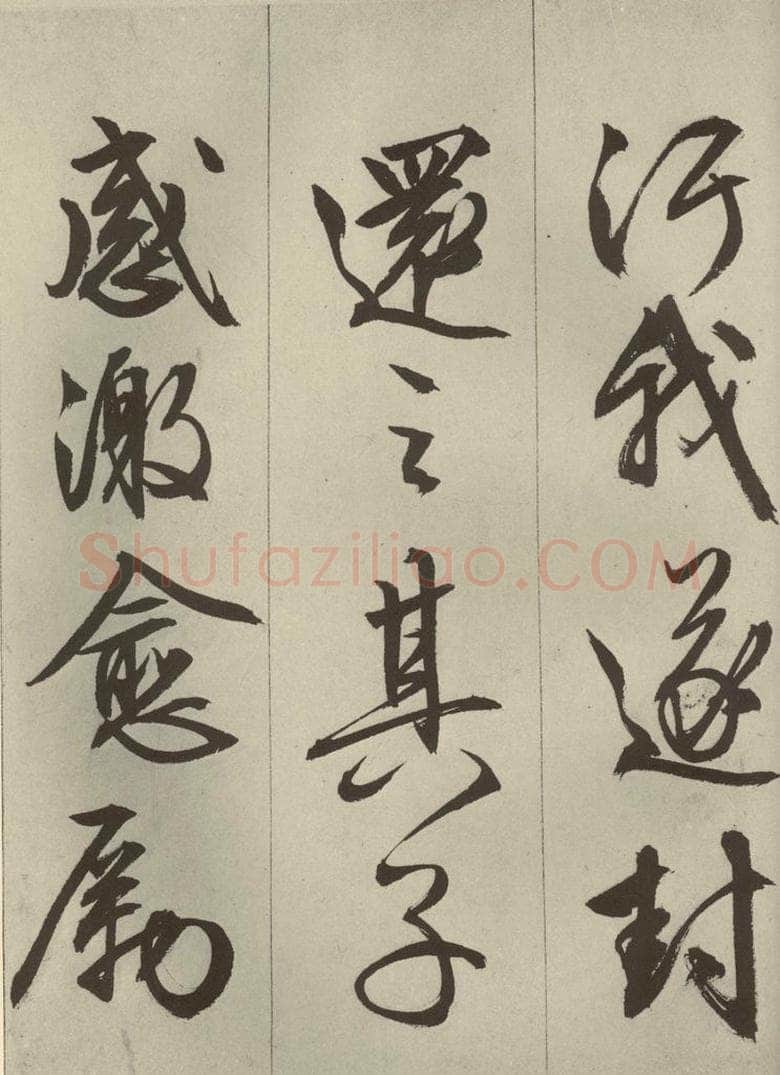 汙我遂封
還之其子
感激愈勵
Shufaziliao.COM